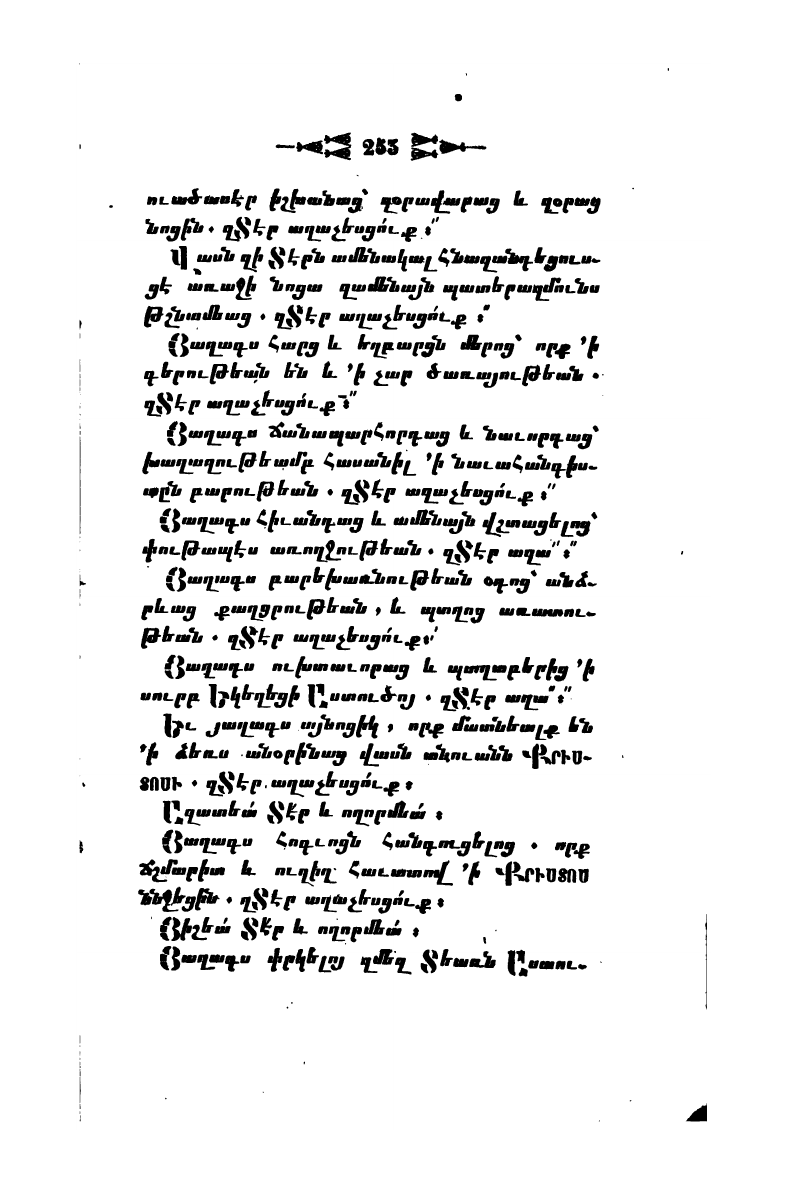 253
ուածասէր իշխանաց՝ զօրավարաց և զօրաց
նոցին. զՏէր աղաչեսցո՛ւք։
Վասն զի Տէրն ամենակալ հնազանդեցուս-
ցէ առաջի նոցա զամենայն պատերազմունս
թշնամեաց. զՏէր աղաչեսցո՛ւք։
Յաղագս հարց և եղբարցն մերոց՝ որք ՚ի
գերութեան են և ՚ի չար ծառայութեան.
զՏէր աղաչեսցո՛ւք։
Յաղագս ճանապարհորդաց և նաւորդաց՝
խաղաղութեամբ հասանիլ ՚ի նաւահանգիս-
տըն բարութեան. զՏէր աղաչեսցո՛ւք։
Յաղագս հիւանդաց և ամենայն վշտացելոց՝
փութապէս առողջութեան. զՏէր աղա՛՛։
Յաղագս բարեխառնութեան օդոց՝ անձ-
րևաց քաղցրութեան, և պտղոց առատու-
թեան. զՏէր աղաչեսցո՛ւք։
Յաղագս ուխտաւորաց և պտղաբերից ՚ի
սուրբ Եկեղեցի Աստուծոյ. զՏէր աղա՛՛։
Եւ յաղագս այնոցիկ, որք մատնեալք են
՚ի ձեռս անօրինաց վասն անուանն ՔՐԻՍ-
ՏՈՍԻ. զՏէր աղաչեսցո՛ւք։
Ազատեա՛ Տէր և ողորմեա՛։
Յաղագս հոգւոցն հանգուցելոց. որք
ճշմարիտ և ուղիղ հաւատով ՚ի ՔՐԻՍՏՈՍ
ննջեցին. զՏէր աղաչեսցո՛ւք։
Յիշեա՛ Տէր և ողորմեա՛։
Յաղագս փրկելոյ զմեզ Տեառն Աստու-